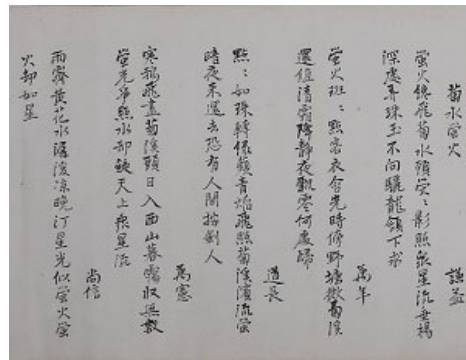 菊水螢火 謙益
螢火飛菊水頭熒〻影照衆星流垂楊
深處珠玉不向驪龍頷下求
萬年
螢火班〻點客衣含光時傍野塘菊溪
還值清霜降静夜飄零何處歸
道長
點〻如珠轉綠蘋青焔飛照菊溪濱流螢
暗夜来還去恐有人間按劍人
萬憲
寒鴉飛盡菊溪頭日入西山暮靄収無数
螢光争點水却疑天上衆星流
尚信
雨霽黄花水潺湲凉晩汀星光似螢火螢
火却如星